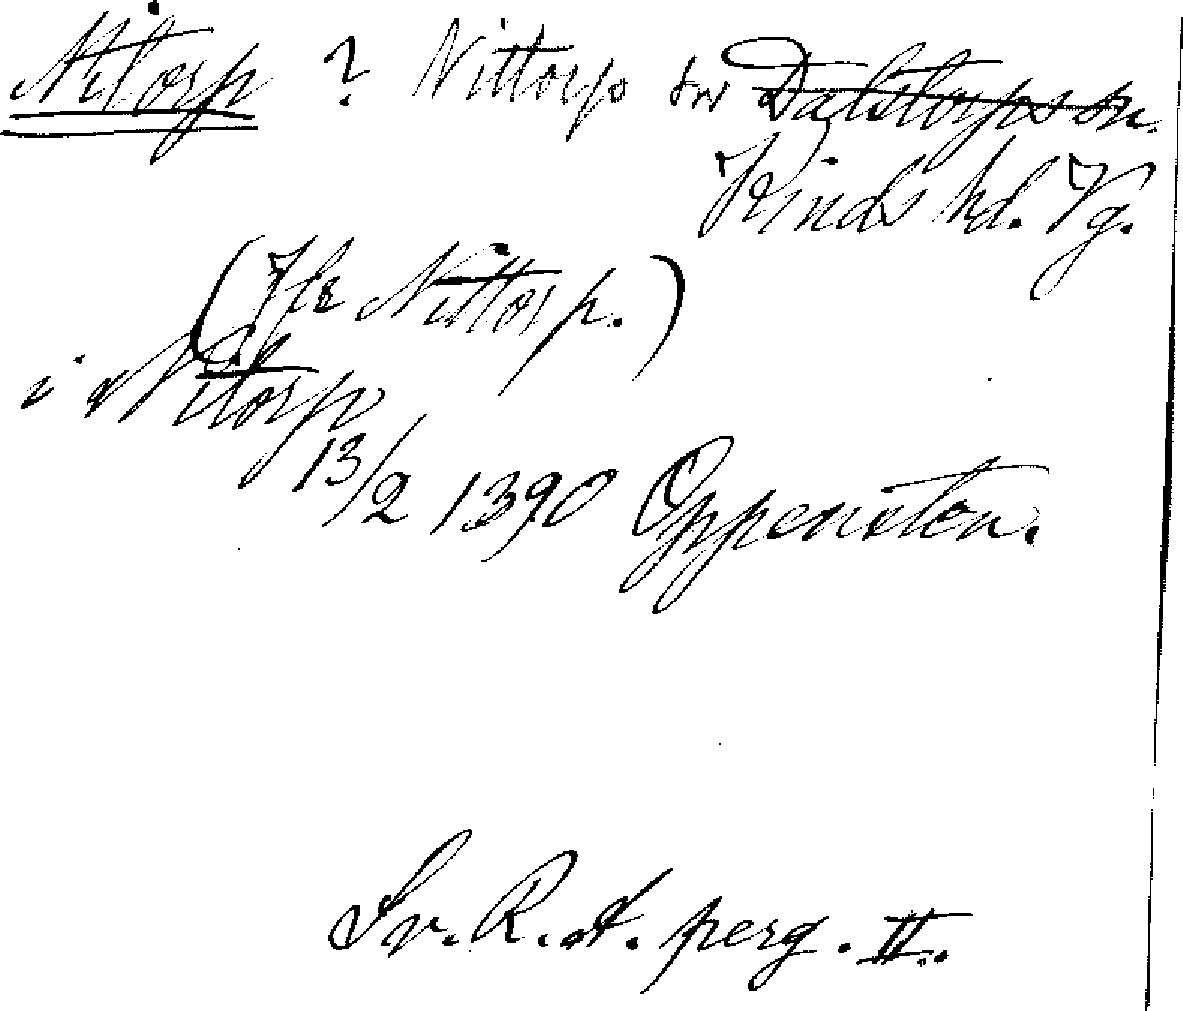 Nitorp ? Nittorp sn Dalstorps sn.
Kinds hd. Vg.
(Jfr Nittorp.)
i Nitorp
13/2 1390 Oppensten.
Sv. R. A. perg. II.